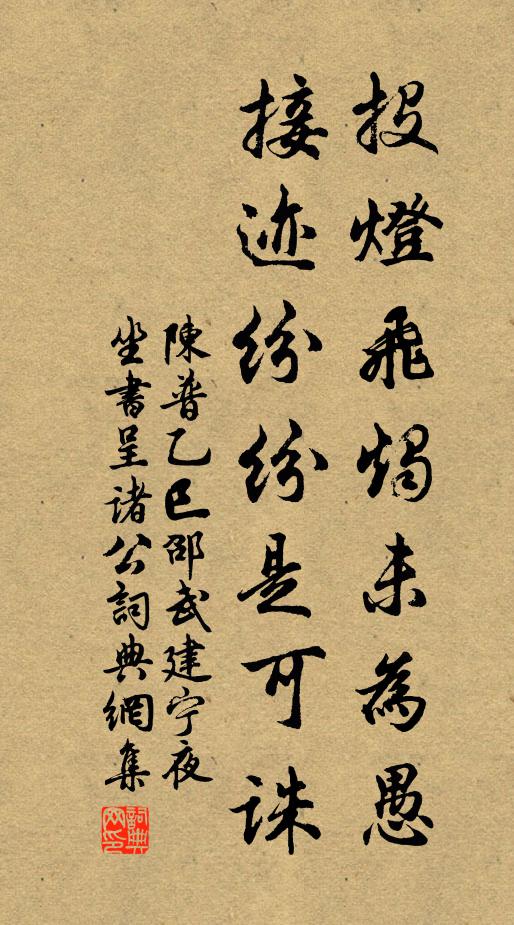 投燈飛燭未為愚
接迹紛紛是可誅
陳普乙巳邵武建宁夜
坐書呈諸公詞典網集
詞典网印